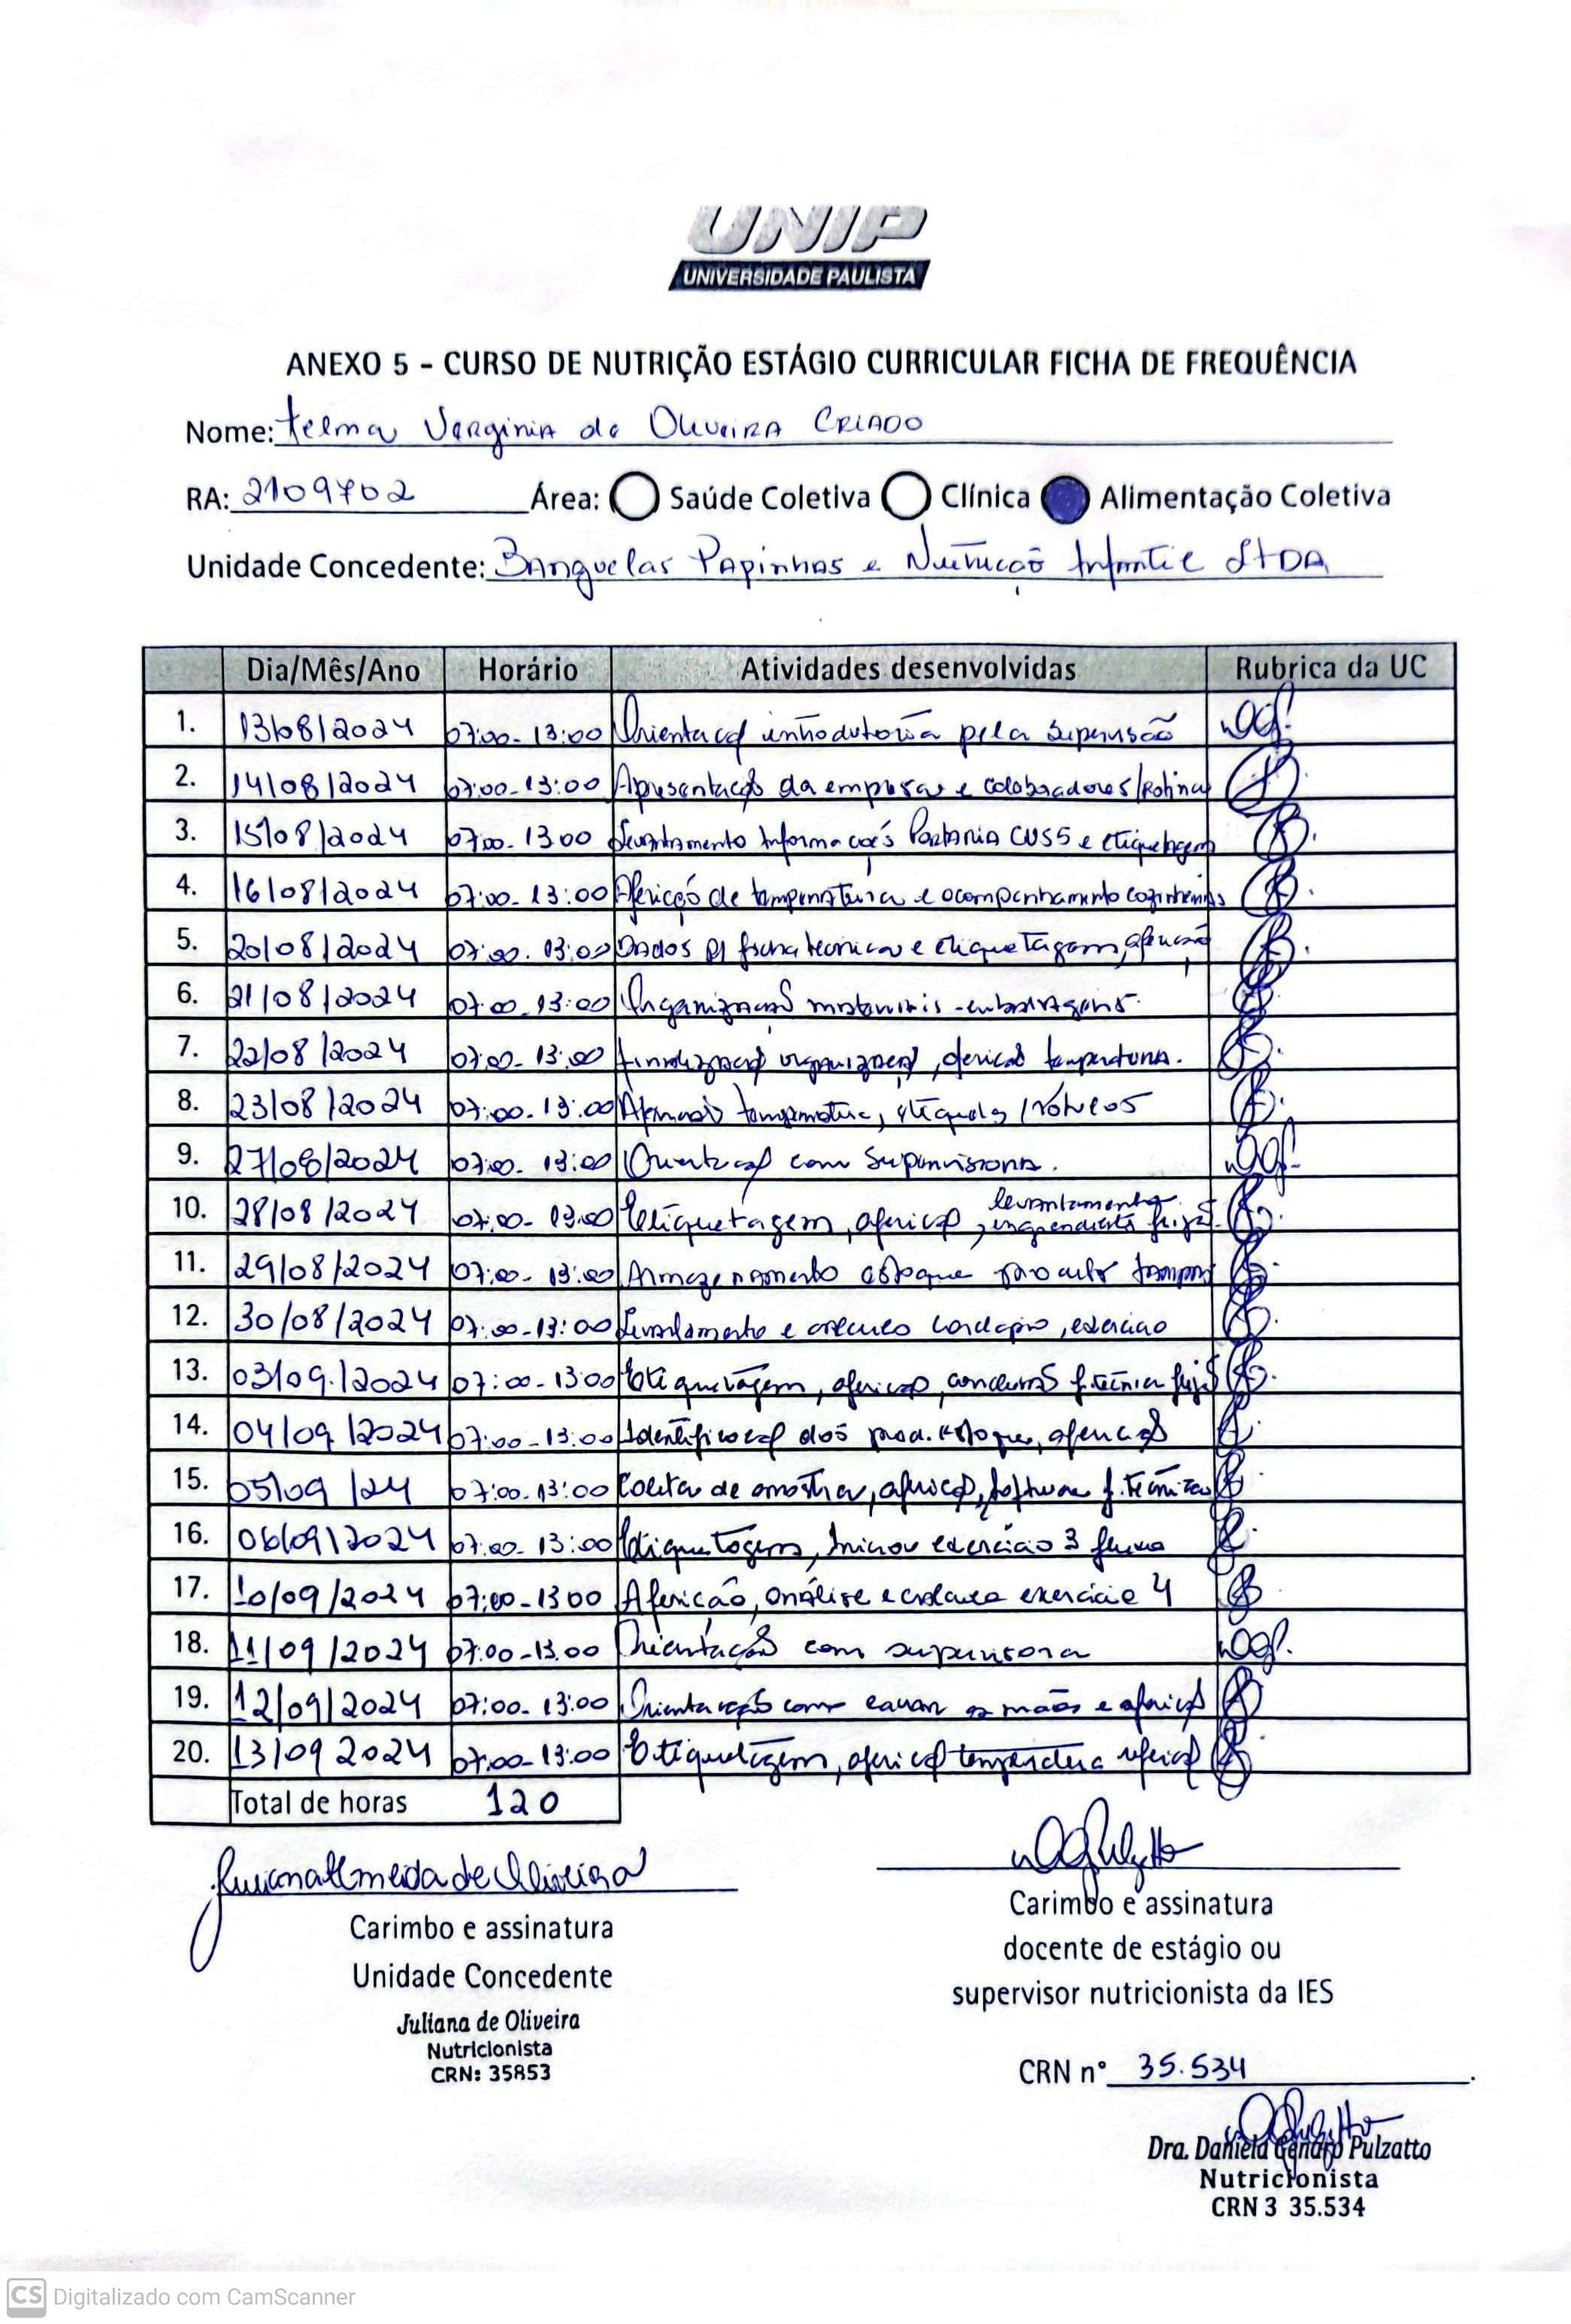 UNIP
UNIVERSIDADE PAULISTA
ANEXO 5 - CURSO DE NUTRIÇÃO ESTÁGIO CURRICULAR FICHA DE FREQUÊNCIA
Nome: Telma Verginia de Oliveira Criado
RA: 2109702 Área: Saúde Coletiva Clínica Alimentação Coletiva
Unidade Concedente: Banguelas Papinhas e Nutrição Infantil LTDA
Dia/Mês/Ano Horário Atividades desenvolvidas Rubrica da UC
1. 13/08/2024 07:00-13:00 Orientação introdutória pela supervisão
2. 14/08/2024 07:00-13:00 Apresentação da empresa e colaboradores/Rotina
3. 15/08/2024 07:00-13:00 Levantamento Informações Portaria CVS5 e etiquetagem
4. 16/08/2024 07:00-13:00 Aferição de temperatura e acompanhamento
5. 20/08/2024 07:00-13:00 Dados p/ ficha tecnica e etiquetagem, aferição
6. 21/08/2024 07:00-13:00 Organização materiais - embalagens.
7. 22/08/2024 07:00-13:00 Finalização organização, aferição temperatura.
8. 23/08/2024 07:00-13:00 Aferição temperatura, etiquetas/rótulos
9. 27/08/2024 07:00-13:00 Orientação com Supervisora.
10. 28/08/2024 07:00-13:00 Etiquetagem, aferição, levantamento ingrediente
11. 29/08/2024 07:00-13:00 Armazenamento estoque
12. 30/08/2024 07:00-13:00 Levantamento e cálculo cardápio, exercício
13. 03/09/2024 07:00-13:00 Etiquetagem, aferição, f. técnica
14. 04/09/2024 07:00-13:00 Identificação dos prod. estoque, aferição
15. 05/09/24 07:00-13:00 Coleta de amostra, aferição, software f. técnica
16. 06/09/2024 07:00-13:00 Etiquetagem, Iniciou exercício 3
17. 10/09/2024 07:00-1300 Aferição, análise e exercício 4
18. 11/09/2024 07:00-13:00 Orientação com supervisora
19. 12/09/2024 07:00-13:00 Orientação como lavar as mãos e aferição
20. 13/09 2024 07:00-13:00 Etiquetagem, aferição temperatura
Total de horas 120
Juliana Almeida de Oliveira
Carimbo e assinatura
Unidade Concedente
Juliana de Oliveira
Nutricionista
CRN: 35853
Carimbo e assinatura
docente de estágio ou
supervisor nutricionista da IES
CRN nº 35.534
Dra. Daniela Genaro Pulzatto
Nutricionista
CRN 3 35.534
CS Digitalizado com CamScanner